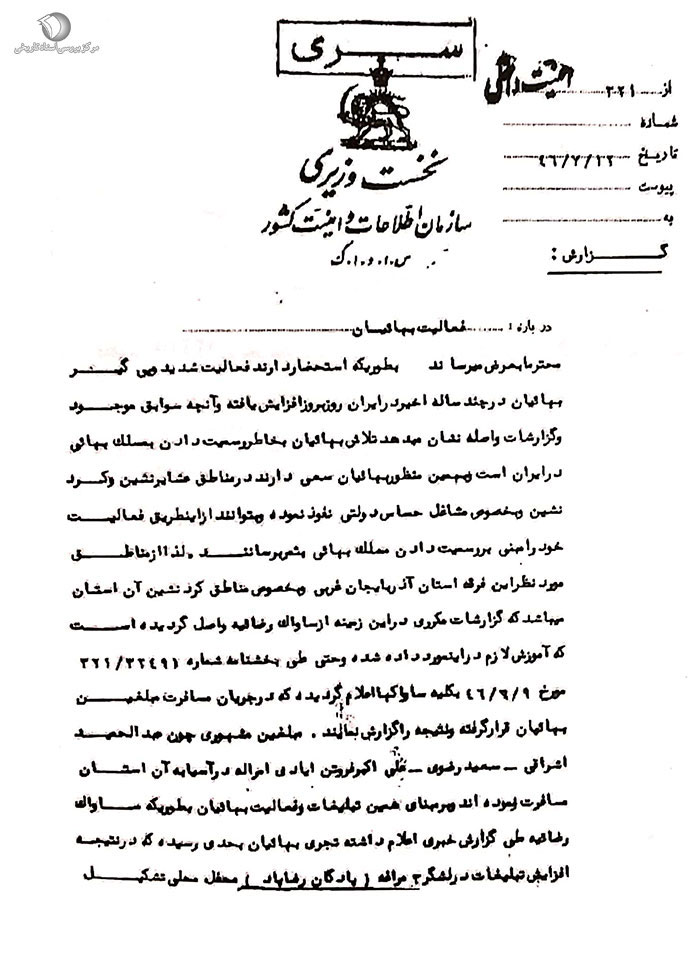 مرکز بررسی اسناد تاریخی
سری
امنیت داخلی
از ۳۲۱
شماره
تاریخ ۴۶/۷/۲۲
پیوست
به
نخست وزیری
سازمان اطلاعات و امنیت کشور
س.ا.و.ا.ک
گزارش :
درباره : فعالیت بهائیان
محترما بعرض میرساند بطوریکه استحضار دارند فعالیت شدید وپی گیر
بهائیان درچند ساله اخیر در ایران روزبروز افزایش یافته وآنچه سوابق موجود
وگزارشات واصله نشان میدهد تلاش بهائیان بخاطر وسعیت دادن بمسلک بهائی
در ایران است وبهمین منظور بهائیان سعی دارند در مناطق عشایر نشین وکرد
نشین وبخصوص مشاغل حساس دولتی نفوذ نموده وبتوانند از اینطریق فعالیت
خود را مبنی بر وسعیت دادن مسلک بهائی بثمر برسانند . لذا از مناطق
مورد نظر این فرقه استان آذربایجان غربی وبخصوص مناطق کرد نشین آن استان
میباشد که گزارشات مکرری در این زمینه از ساواک رضائیه واصل گردیده است
که آموزش لازم در اینمورد داده شده وحتی طی بخشنامه شماره ۳۲۱/۳۲۴۹۱
مورخ ۴۶/۶/۹ بکلیه ساواکها اعلام گردیده که در جریان مسافرت مبلغین
بهائیان قرار گرفته ونتیجه را گزارش نمایند . مبلغین مشهوری چون عبدالحمید
اشراقی - سعید رضوی - علی اکبر فروتن ایادی امراله در آسیا به آن استان
مسافرت نموده اند وبرمبنای همین تبلیغات وفعالیت بهائیان بطوریکه ساواک
رضائیه طی گزارش خبری اعلام داشته تجری بهائیان بحدی رسیده که در نتیجه
افزایش تبلیغات در لشگر ۳ مراغه ( پادگان رضاپاد ) محفل محلی تشکیل